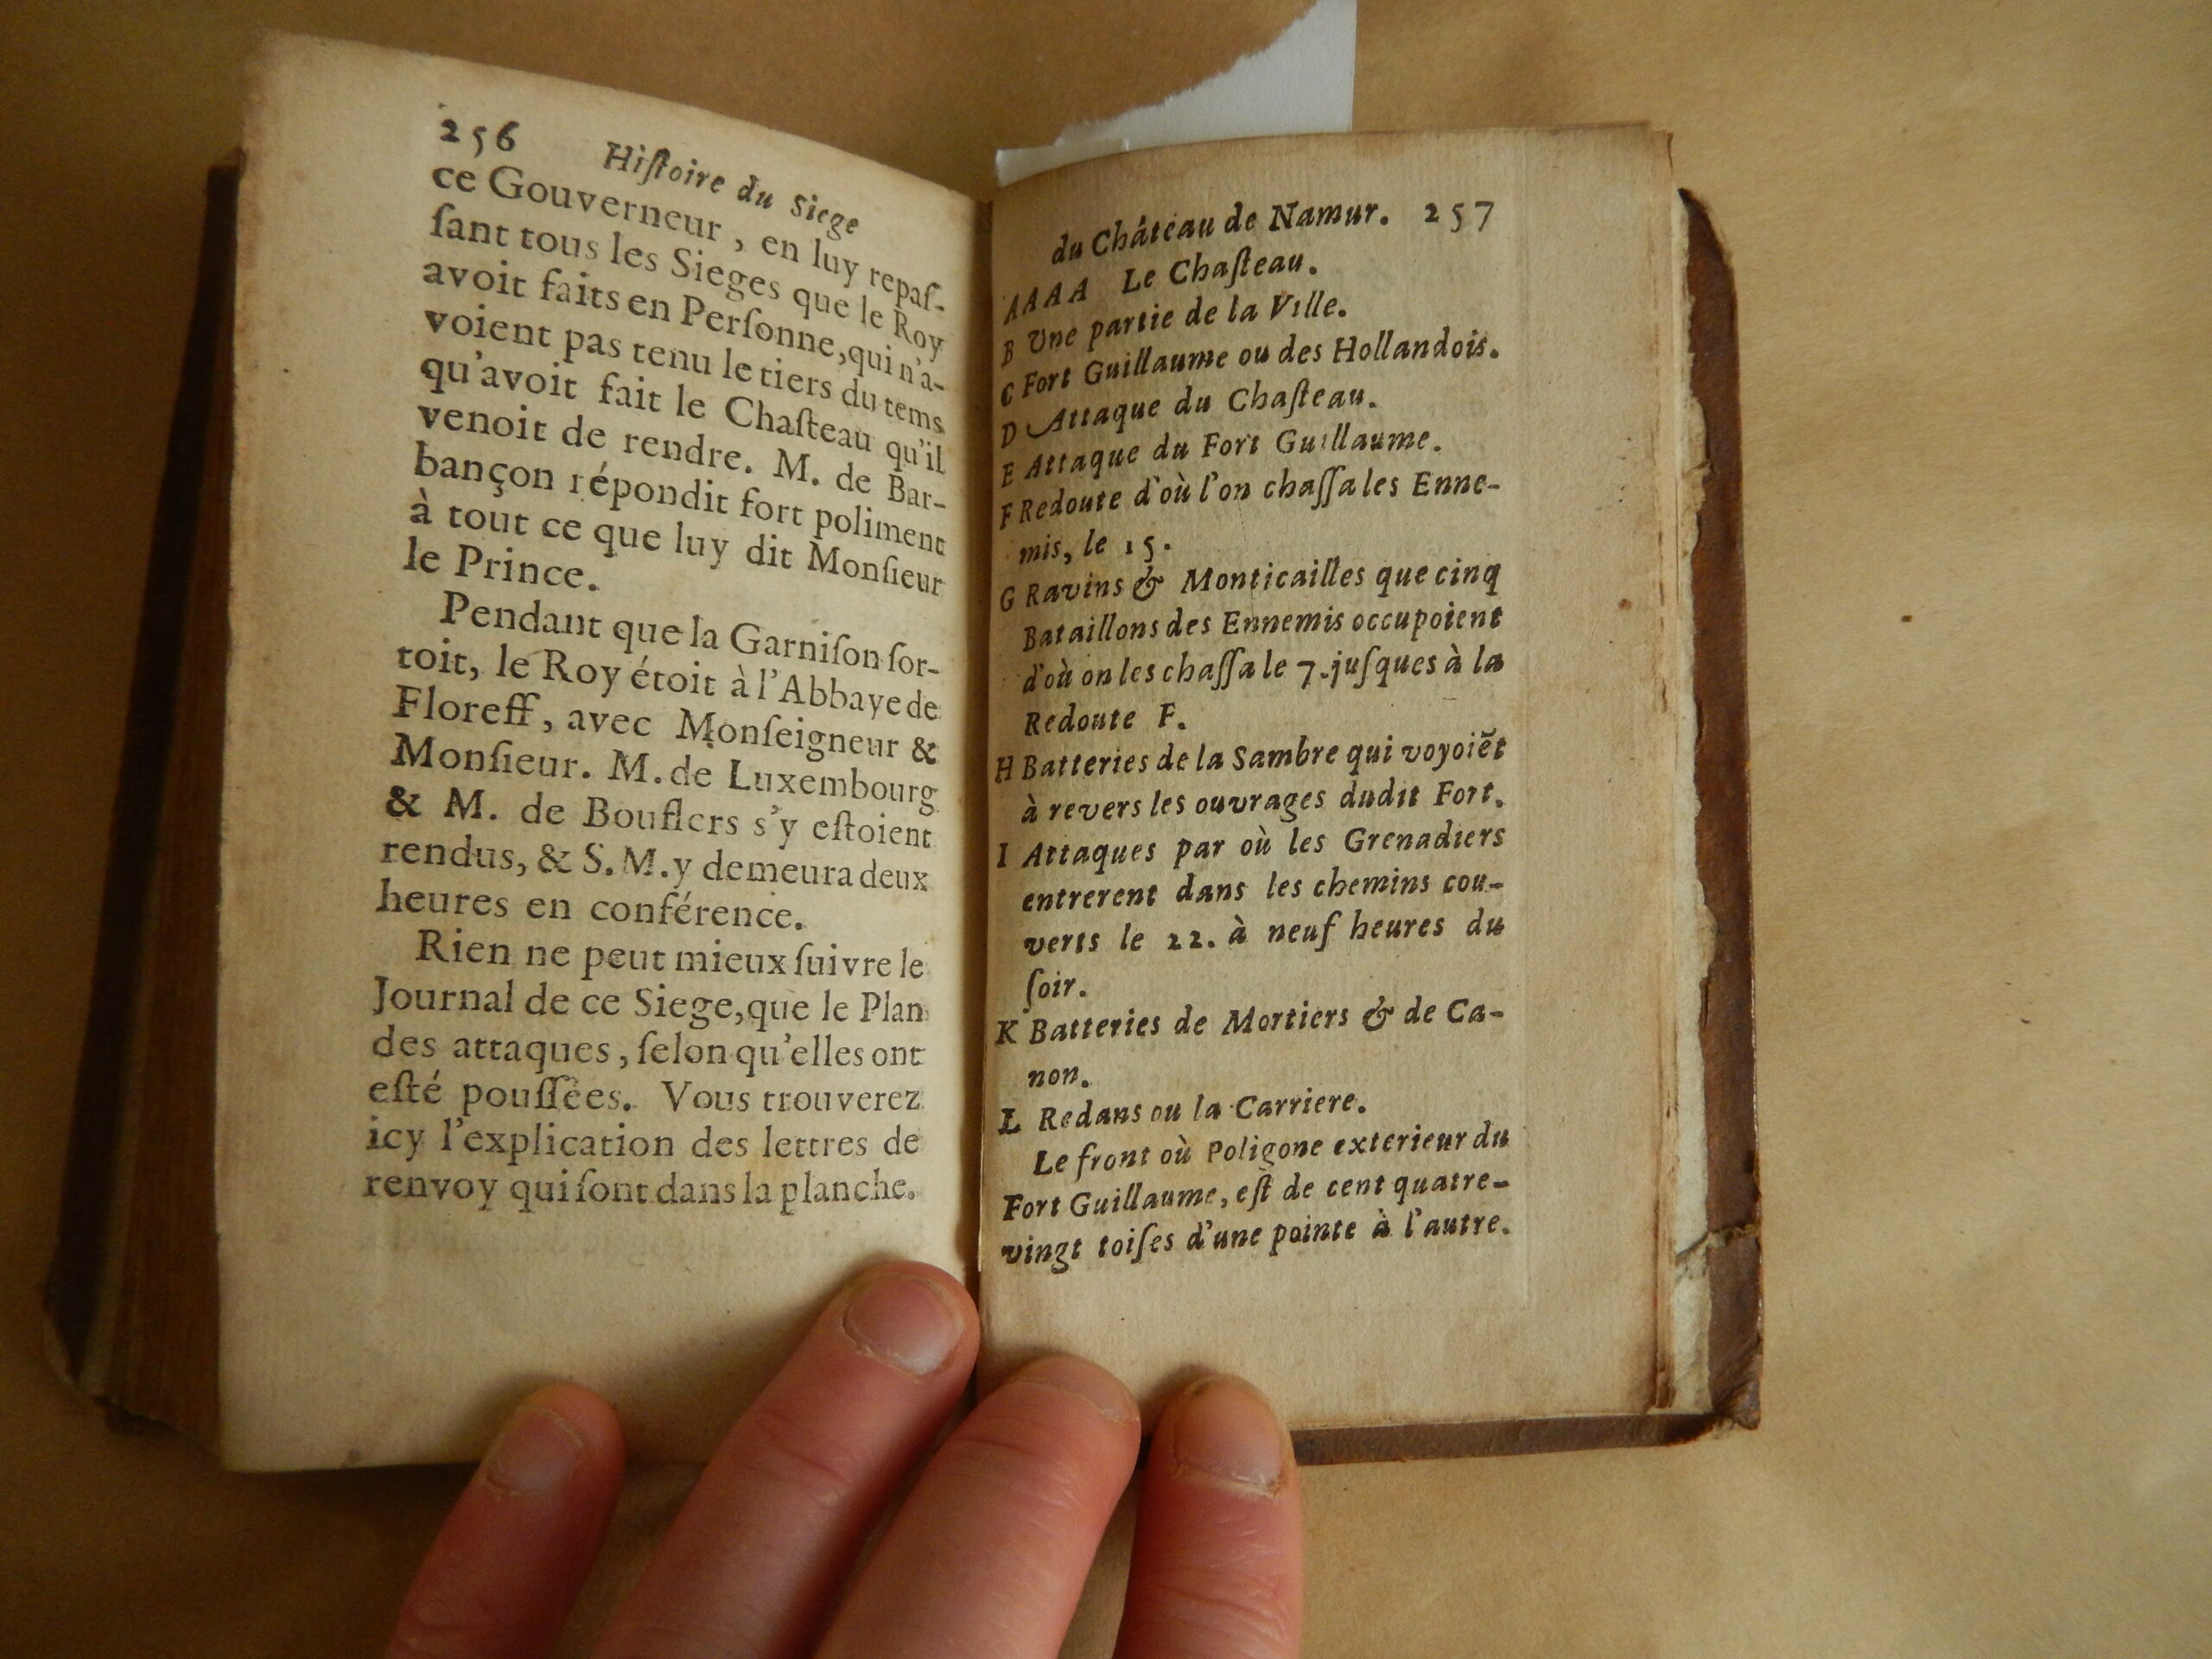 256 Hiſtoire du Siege
ce Gouverneur, en luy repaſ-
ſant tous les Sieges que le Roy
avoit faits en Perſonne, qui n'a-
voient pas tenu le tiers du tems
qu'avoit fait le Chaſteau qu'il
venoit de rendre. M. de Bar-
bançon répondit fort poliment
à tout ce que luy dit Monſieur
le Prince.
Pendant que la Garniſon ſor-
toit, le Roy étoit à l'Abbaye de
Floreff, avec Monſeigneur &
Monſieur. M. de Luxembourg
& M. de Bouflers s'y eſtoient
rendus, & S. M. y demeura deux
heures en conférence.
Rien ne peut mieux ſuivre le
Journal de ce Siege, que le Plan
des attaques, ſelon qu'elles ont
eſté pouſſées. Vous trouverez
icy l'explication des lettres de
renvoy qui ſont dans la planche.
du Château de Namur. 257
AAAA Le Chaſteau.
B Une partie de la Ville.
C Fort Guillaume ou des Hollandois.
D Attaque du Chaſteau.
E Attaque du Fort Guillaume.
F Redoute d'où l'on chaſſa les Enne-
mis, le 15.
G Ravins & Monticailles que cinq
Bataillons des Ennemis occupoient
d'où on les chaſſa le 7. juſques à la
Redoute F.
H Batteries de la Sambre qui voyoiẽt
à revers les ouvrages dudit Fort.
I Attaques par où les Grenadiers
entrerent dans les chemins cou-
verts le 22. à neuf heures du
ſoir.
K Batteries de Mortiers & de Ca-
non.
L Redans ou la Carriere.
Le front où Poligone exterieur du
Fort Guillaume, eſt de cent quatre-
vingt toiſes d'une pointe à l'autre.